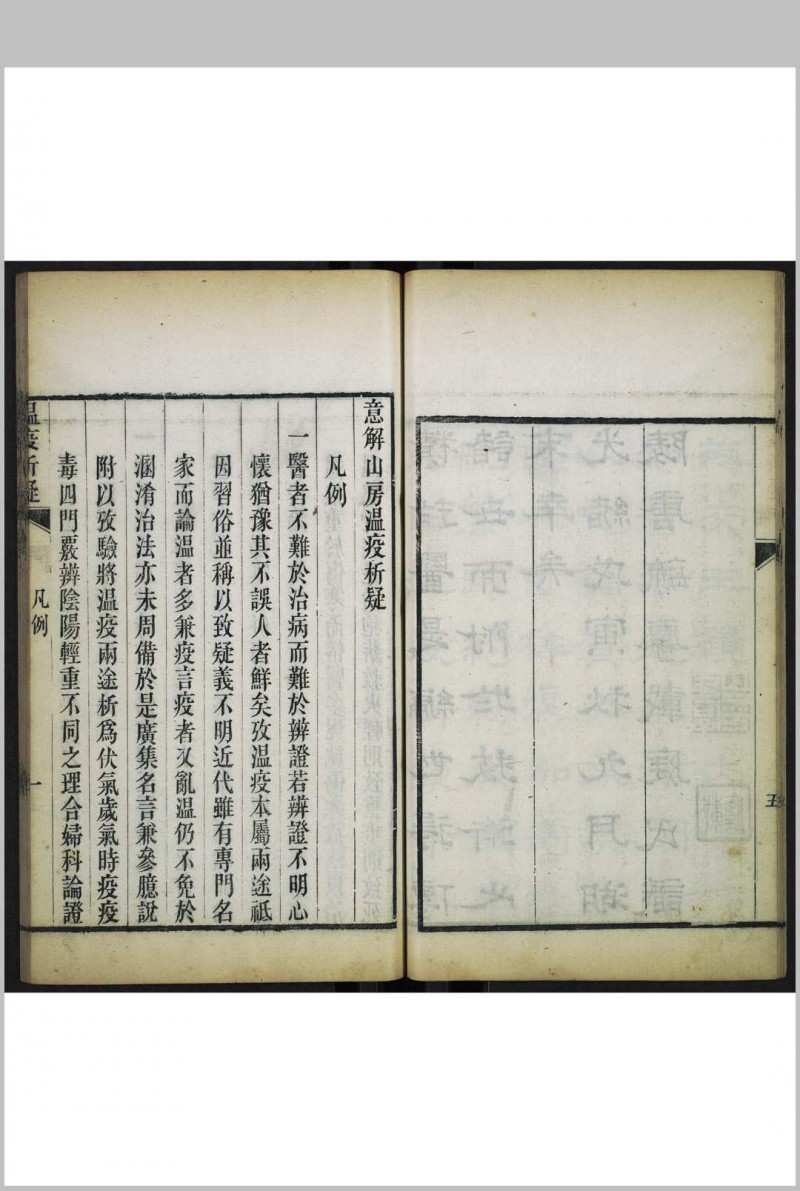 五
意解山房溫疫析疑
凡例
一醫者不難於治病而難於辨證若辨證不明心
懷猶豫其不誤人者鮮矣攷溫疫本屬兩途祗
因習俗並稱以致疑義不明近代雖有專門名
家而論溫者多兼疫言疫者又亂溫仍不免於
溷淆治法亦未周備於是廣集名言兼參臆說
附以攷驗將溫疫兩途析爲伏氣歲氣時疫疫
毒四門覈辨陰陽輕重不同之理合婦科論證
溫疫析疑
凡例
一